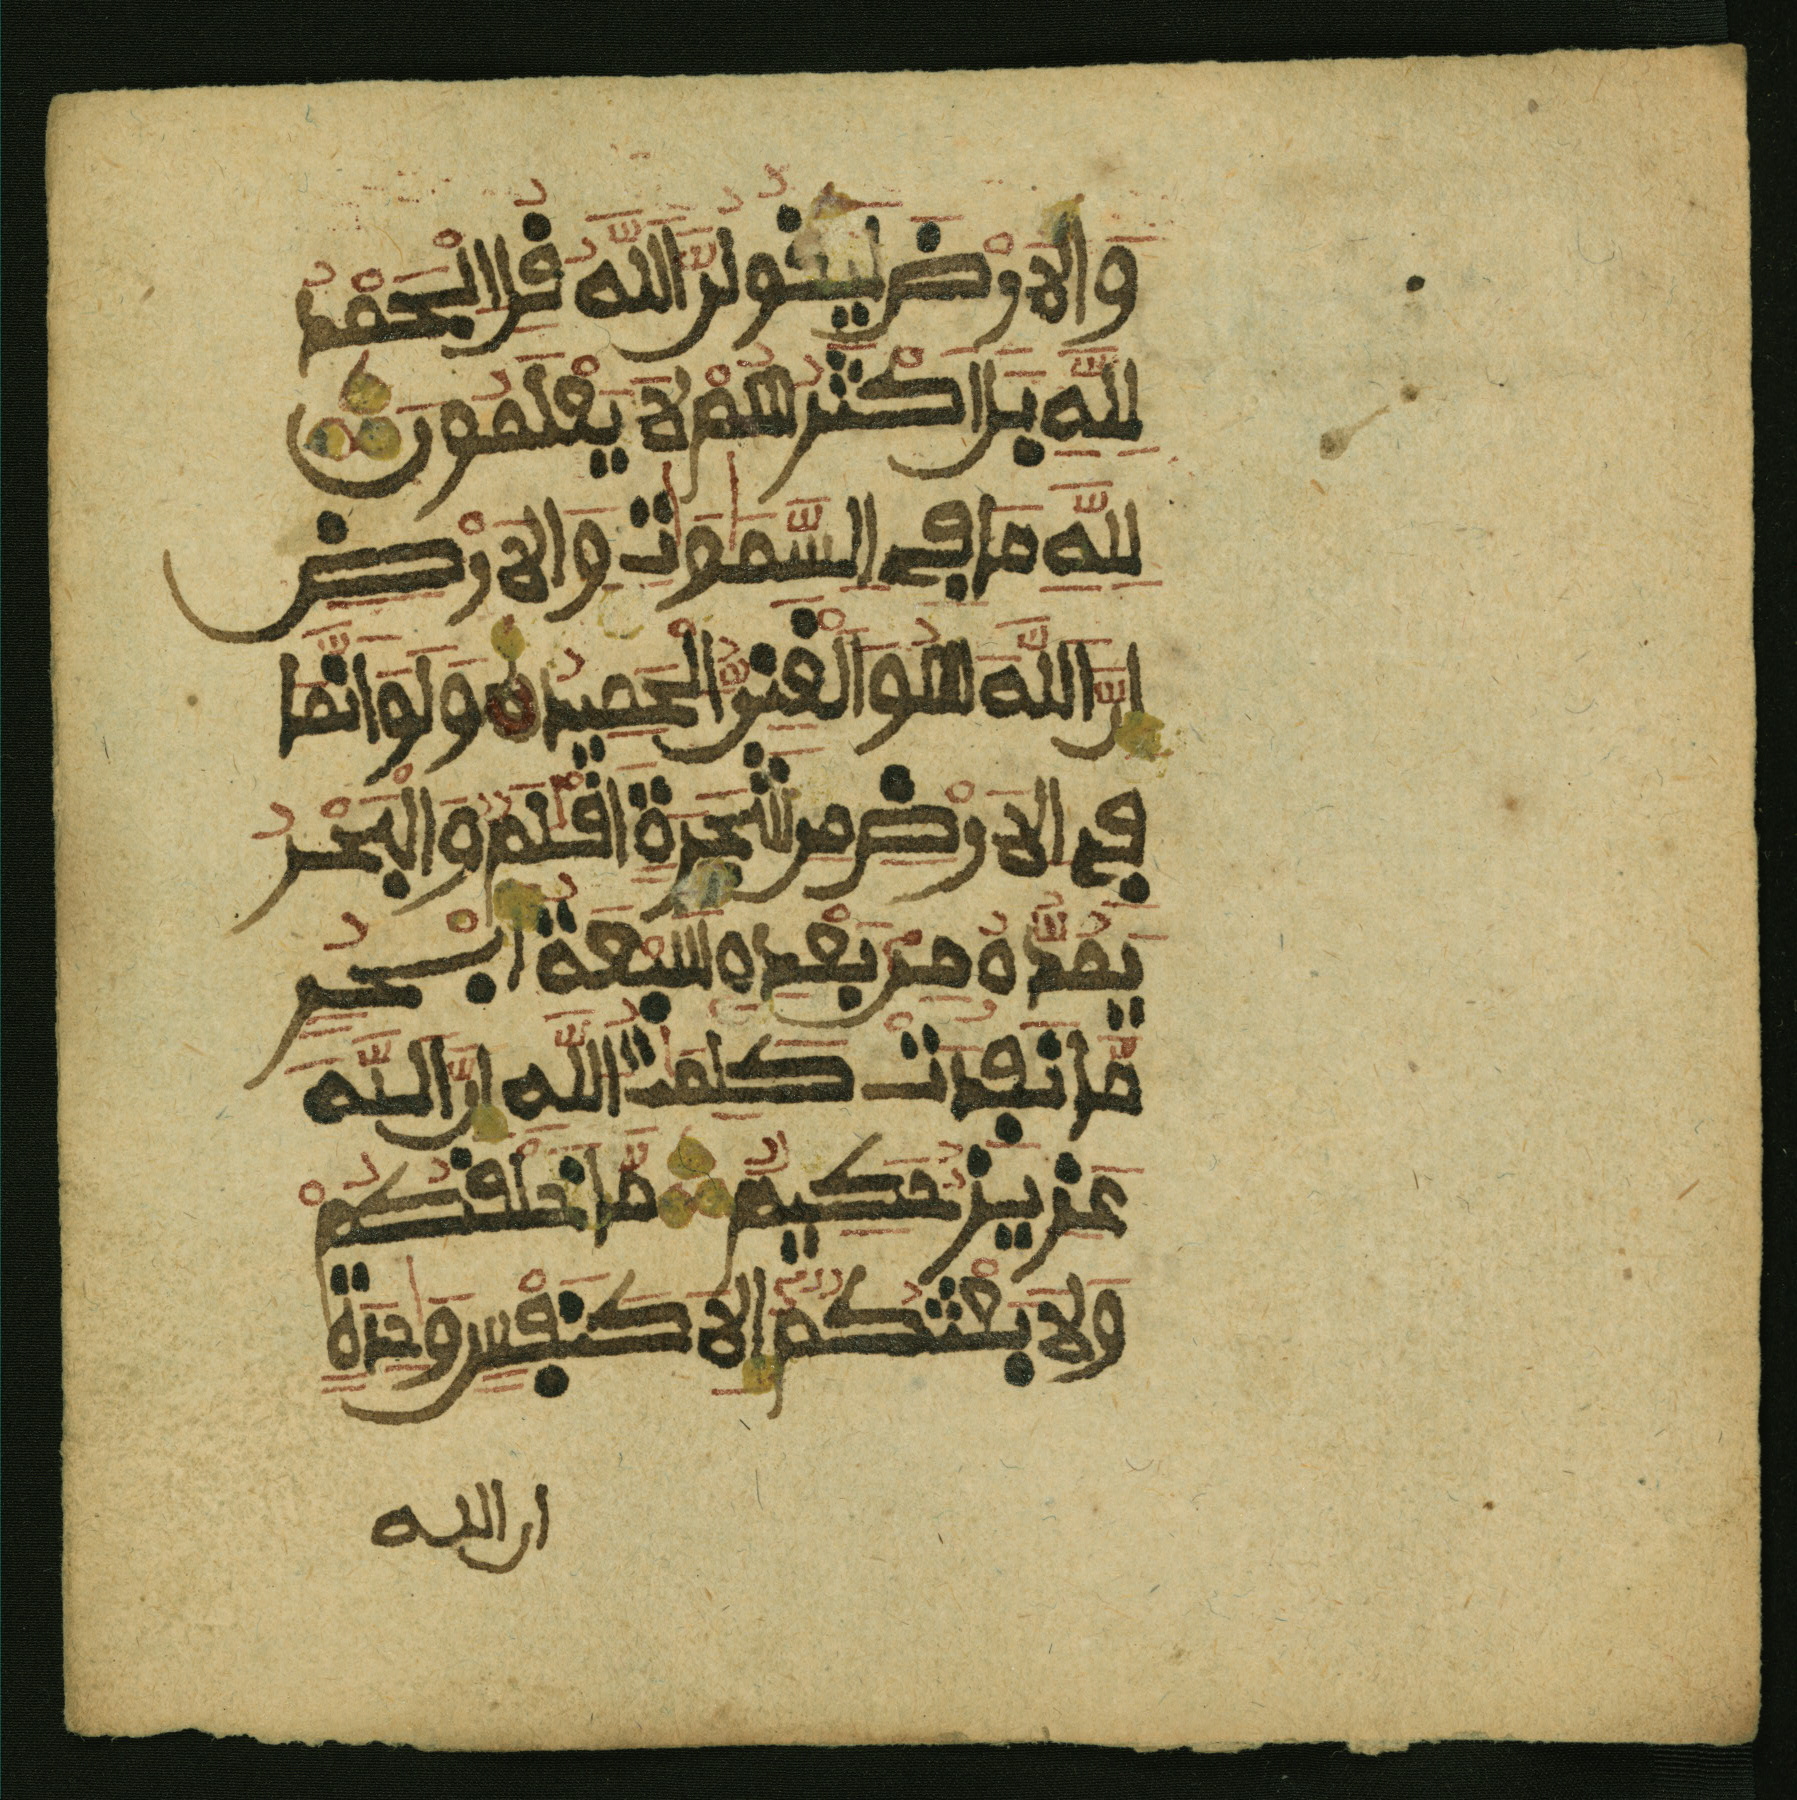 وَالَارْضَ لَيَقُولُنَّ اللَّهُ قُلِ الْحَمْدُ
لِلَّهِ بَلَ اكْثَرُهُمْ لَا يَعْلَمُونَ
لِلَّهِ مَا فِے السَّمَٰوَٰتِ وَالَارْضِ
إِنَّ اللَّهَ هُوَ الْغَنِيُّ الْحَمِيدُ وَلَوَ انَّمَا
فِے الَارْضِ مِن شَجَرَةٍ اقْلَٰمٌ وَالْبَحْرُ
يَمُدُّهُ مِنۢ بَعْدِهِ سَبْعَةُ أَبْحُرٍ
مَّا نَفِدَتْ كَلِمَٰتُ اللَّهِ إِنَّ اللَّهَ
عَزِيزٌ حَكِيمٌ مَّا خَلْقُكُمْ
وَلَا بَعْثُكُمُۥ إِلَّا كَنَفْسٍ وَٰحِدَةٍ
ان الله